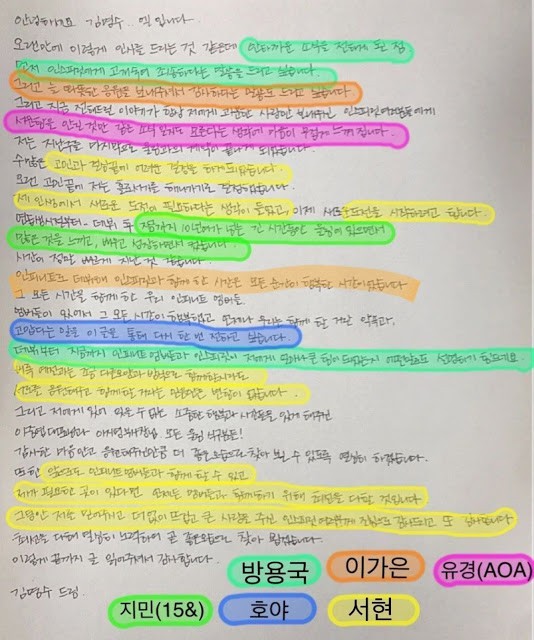 안녕하세요 김명수.. 엘 입니다.
오랜만에 이렇게 인사를 드리는 것 같은데 안타까운 소식을 전하게 된 점
먼저 인스피릿에게 고개숙여 죄송하다는 말씀을 드리고 싶습니다.
그리고 늘 따뜻한 응원을 보내주셔서 감사하다는 말씀도 드리고 싶습니다.
그리고 지금 전해드릴 이야기가 항상 저에게 과분한 사랑만 보내주신 인스피릿 여러분들에게
서운함을 안길 것만 같은 소식일지도 모른다는 생각에 마음이 무겁게 느껴집니다.
저는 지난주를 마지막으로 울림과의 계약이 끝나게 되었습니다.
수많은 고민과 결정끝에 어려운 결정을 하게되었습니다.
오랜 고민끝에 저는 홀로서기를 해나가기로 결정하였습니다.
제 인생에서 새로운 도전이 필요하다는 생각이 들었고, 이제 새로운도전을 시작하려고 합니다.
연습생시절부터~ 데뷔 후 지금까지 10년여가 넘는 긴 시간동안 울림에 있으면서
많은 것을 느끼고, 배우고 성장하면서 컸습니다.
시간이 정말 빠르게 지난 것 같습니다.
인피니트로 데뷔해 인스피릿과 함께 한 시간은 모든 순간이 행복한 시간이었습니다
그 모든 시간을 함께 한 우리 인피니트 멤버들.
멤버들이 있어서 그 모든 시간이 행복했었고 언제나 우리는 함께 할 거란 약속과,
고맙다는 말을 이 글을 통해 다시 한 번 전하고 싶습니다.
데뷔부터 지금까지 인피니트 멤버들과 인스피릿이 저에게 얼마나 큰 힘이 되었는지 어떤말로도 설명하기 힘드네요.
비록 예전과는 조금 다른모양과 방식으로 함께하겠지만
서로를 응원해주고 함께 할 거라는 믿음만은 변함이 없습니다.
그리고 저에게 있어 잊을 수 없는 소중한 행복과 사람들을 있게 해주신
이중엽 대표님과 이하 울림 모든 식구분들!
감사한 마음 안고 응원해주신만큼 더 좋은모습으로 찾아 뵐 수 있도록 열심히 하겠습니다.
또한 앞으로도 인피니트 멤버들과 함께 할 수 있고
제가 필요한 곳이 있다면 언제든 멤버들과 함께하기 위해 최선을 다할 것입니다
그동안 저를 믿어주시고 더없이 뜨겁고 큰 사랑을 주신 인스피릿 여러분께 진심으로 감사드리고 또 감사합니다
최선을 다해 열심히 노력하여 곧 좋은모습으로 찾아 뵙겠습니다.
이렇게 끝까지 글 읽어주셔서 감사합니다.
김명수 드림.
방용국 이가은 유경(AOA)
지민(15&) 호야 서현